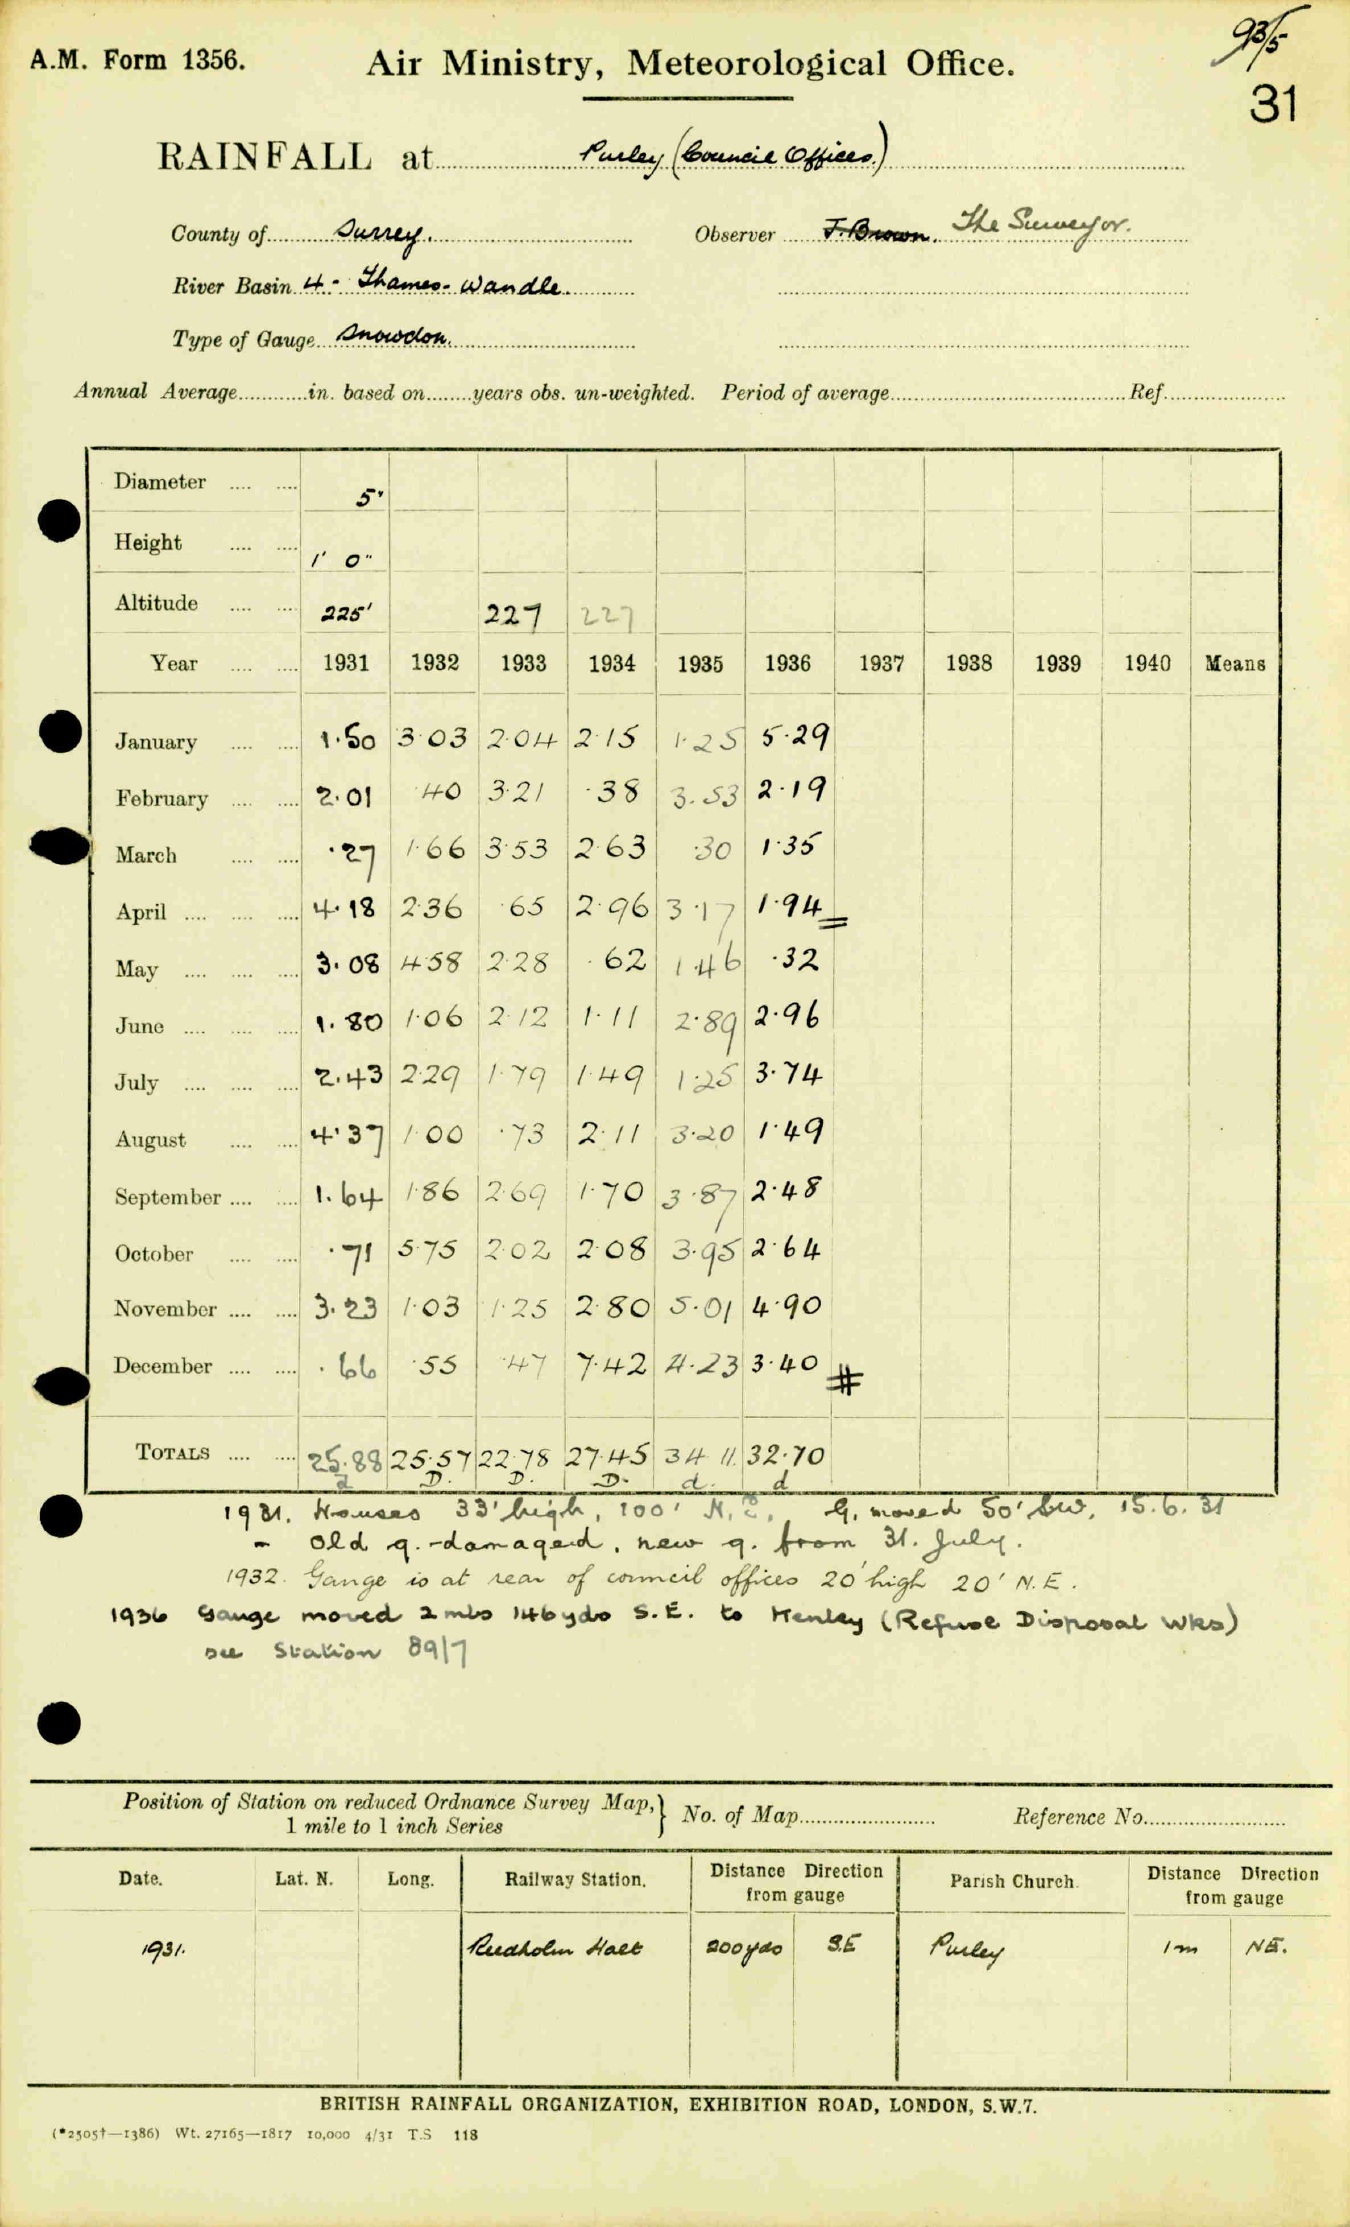 93/5
A.M. Form 1356. Air Ministry, Meteorological Office.
31
RAINFALL at Purley (Council Offices.)
County of Surrey. Observer F. Brown. The Surveyor.
River Basin 4 - Thames - Wandle.
Type of Gauge Snowdon.
Annual Average............in. based on........years obs. un-weighted. Period of average........................................Ref.....................
Diameter .... .... 5"
Height .... .... 1' 0"
Altitude .... .... 225' 227 227
Year .... .... 1931 1932 1933 1934 1935 1936 1937 1938 1939 1940 Means
January .... .... 1.50 3.03 2.04 2.15 1.25 5.29
February .... .... 2.01 .40 3.21 .38 3.53 2.19
March .... .... .27 1.66 3.53 2.63 .30 1.35
April .... .... .... 4.18 2.36 .65 2.96 3.17 1.94
May .... .... .... 3.08 4.58 2.28 .62 1.46 .32
June .... .... .... 1.80 1.06 2.12 1.11 2.89 2.96
July .... .... .... 2.43 2.29 1.79 1.49 1.25 3.74
August .... .... 4.37 1.00 .73 2.11 3.20 1.49
September .... .... 1.64 1.86 2.69 1.70 3.87 2.48
October .... .... .71 5.75 2.02 2.08 3.95 2.64
November .... .... 3.23 1.03 1.25 2.80 5.01 4.90
December .... .... .66 .55 .47 7.42 4.23 3.40 #
TOTALS .... .... 25.88 25.57 22.78 27.45 34.11 32.70
D. D. D. d. d
1931. Houses 33' high, 100' N.E. G. moved 50' SW. 15.6.31
- Old g. damaged, new g. from 31. July.
1932. Gauge is at rear of council offices 20' high 20' N.E.
1936 Gauge moved 2 mls 146 yds S.E. to Kenley (Refuse Disposal Wks)
see Station 89/7
Position of Station on reduced Ordnance Survey Map, } No. of Map........................ Reference No.........................
1 mile to 1 inch Series
Date. Lat. N. Long. Railway Station. Distance Direction from gauge Parish Church. Distance Direction from gauge
1931. Reedholm Halt 200 yds S.E Purley 1 m N.E.
BRITISH RAINFALL ORGANIZATION, EXHIBITION ROAD, LONDON, S.W.7.
(*2505†—1386) Wt. 27165—1817 10,000 4/31 T.S 118